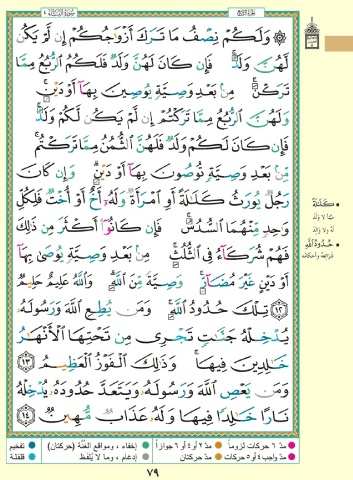 سُورَةُ النِّسَاءِ ٤
الجزء الرابع
۞ وَلَكُمْ نِصْفُ مَا تَرَكَ أَزْوَٰجُكُمْ إِن لَّمْ يَكُن
لَّهُنَّ وَلَدٌ ۚ فَإِن كَانَ لَهُنَّ وَلَدٌ فَلَكُمُ ٱلرُّبُعُ مِمَّا
تَرَكْنَ ۚ مِنۢ بَعْدِ وَصِيَّةٍ يُوصِينَ بِهَآ أَوْ دَيْنٍ ۚ
وَلَهُنَّ ٱلرُّبُعُ مِمَّا تَرَكْتُمْ إِن لَّمْ يَكُن لَّكُمْ وَلَدٌ ۚ
فَإِن كَانَ لَكُمْ وَلَدٌ فَلَهُنَّ ٱلثُّمُنُ مِمَّا تَرَكْتُم ۚ
مِّنۢ بَعْدِ وَصِيَّةٍ تُوصُونَ بِهَآ أَوْ دَيْنٍ ۗ وَإِن كَانَ
رَجُلٌ يُورَثُ كَلَٰلَةً أَوِ ٱمْرَأَةٌ وَلَهُۥٓ أَخٌ أَوْ أُخْتٌ فَلِكُلِّ
وَٰحِدٍ مِّنْهُمَا ٱلسُّدُسُ ۚ فَإِن كَانُوٓا۟ أَكْثَرَ مِن ذَٰلِكَ
فَهُمْ شُرَكَآءُ فِى ٱلثُّلُثِ ۚ مِنۢ بَعْدِ وَصِيَّةٍ يُوصَىٰ بِهَآ
أَوْ دَيْنٍ غَيْرَ مُضَآرٍّ ۚ وَصِيَّةً مِّنَ ٱللَّهِ ۗ وَٱللَّهُ عَلِيمٌ حَلِيمٌ
﴿١٢﴾ تِلْكَ حُدُودُ ٱللَّهِ ۚ وَمَن يُطِعِ ٱللَّهَ وَرَسُولَهُۥ
يُدْخِلْهُ جَنَّٰتٍ تَجْرِى مِن تَحْتِهَا ٱلْأَنْهَٰرُ
خَٰلِدِينَ فِيهَا ۚ وَذَٰلِكَ ٱلْفَوْزُ ٱلْعَظِيمُ ﴿١٣﴾
وَمَن يَعْصِ ٱللَّهَ وَرَسُولَهُۥ وَيَتَعَدَّ حُدُودَهُۥ يُدْخِلْهُ
نَارًا خَٰلِدًا فِيهَا وَلَهُۥ عَذَابٌ مُّهِينٌ ﴿١٤﴾
كَلَالَةً
مَيِّتًا لا وَلَدَ
لَهُ ولا وَالِد
حُدُودُ اللهِ
شرائعهُ وأحكامُه
مدّ ٦ حركات لزوماً
مدّ ٢ أو ٤ أو ٦ جوازاً
إخفاء، ومواقع الغنّة (حركتان)
تفخيم
مدّ واجب ٤ أو ٥ حركات
مدّ حركتان
إدغام، وما لا يُلفَظ
قلقلة
٧٩